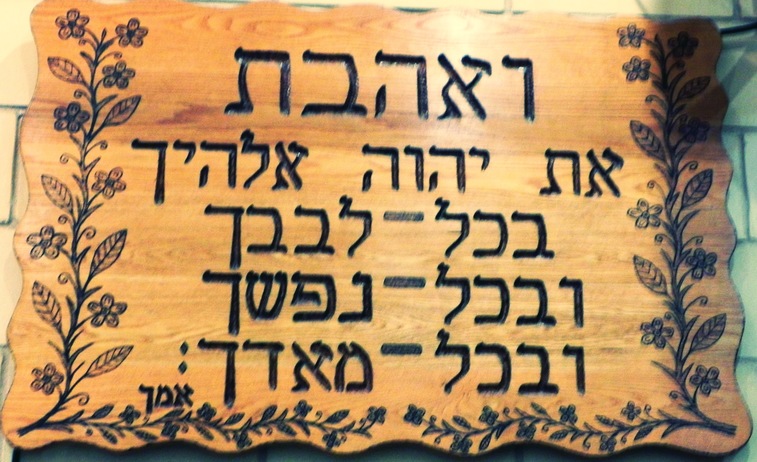 ואהבת
את יהוה אלהיך
בכל־לבבך
ובכל־נפשך
ובכל־מאדך:
אמך